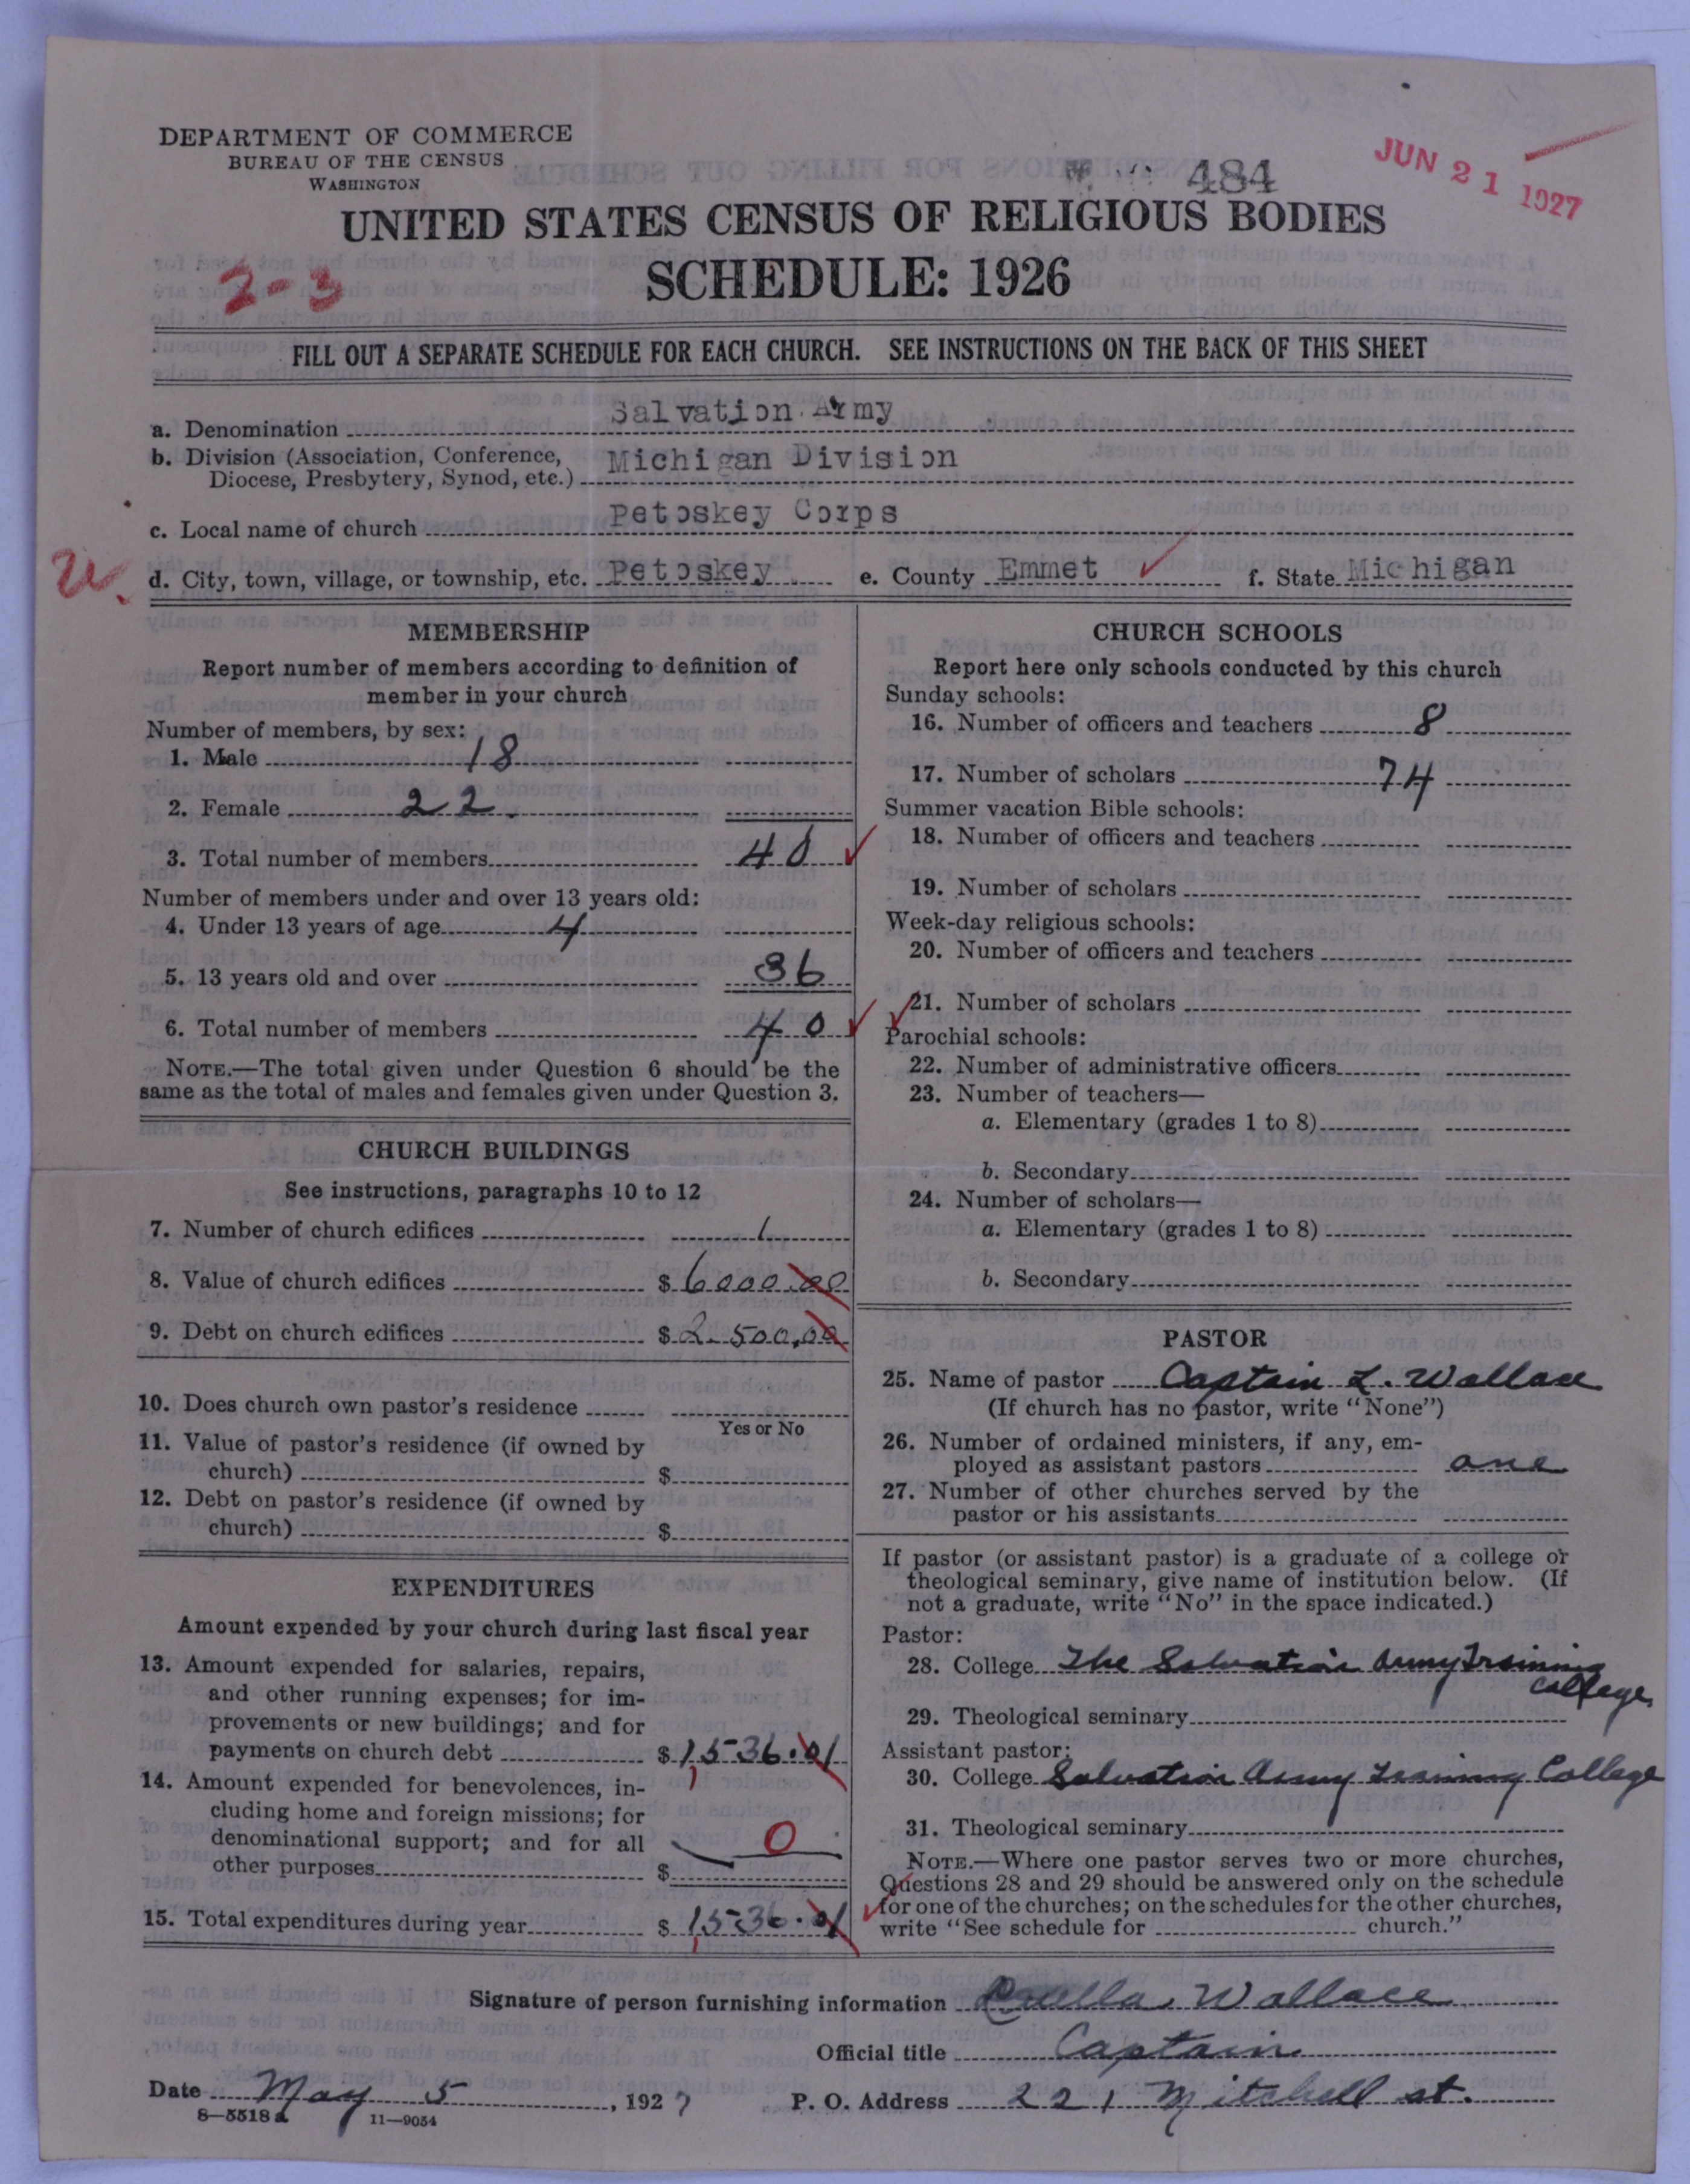 DEPARTMENT OF COMMERCE
BUREAU OF THE CENSUS
WASHINGTON
484
JUN 21 1927
UNITED STATES CENSUS OF RELIGIOUS BODIES
2-3
SCHEDULE: 1926
FILL OUT A SEPARATE SCHEDULE FOR EACH CHURCH. SEE INSTRUCTIONS ON THE BACK OF THIS SHEET
a. Denomination Salvation Army
b. Division (Association, Conference, Diocese, Presbytery, Synod, etc.) Michigan Division
c. Local name of church Petoskey Corps
d. City, town, village, or township, etc. Petoskey e. County Emmet f. State Michigan
MEMBERSHIP
Report number of members according to definition of
member in your church
Number of members, by sex:
1. Male 18
2. Female 22.
3. Total number of members 40
Number of members under and over 13 years old:
4. Under 13 years of age 4
5. 13 years old and over 36
6. Total number of members 40
NOTE.—The total given under Question 6 should be the
same as the total of males and females given under Question 3.
CHURCH BUILDINGS
See instructions, paragraphs 10 to 12
7. Number of church edifices 1
8. Value of church edifices $ 6000.00
9. Debt on church edifices $ 2.500.00
10. Does church own pastor's residence
Yes or No
11. Value of pastor's residence (if owned by
church) $
12. Debt on pastor's residence (if owned by
church) $
EXPENDITURES
Amount expended by your church during last fiscal year
13. Amount expended for salaries, repairs,
and other running expenses; for im-
provements or new buildings; and for
payments on church debt $ 1,536.01
14. Amount expended for benevolences, in-
cluding home and foreign missions; for
denominational support; and for all
other purposes $ 0
15. Total expenditures during year $ 1,536.01
CHURCH SCHOOLS
Report here only schools conducted by this church
Sunday schools:
16. Number of officers and teachers 8
17. Number of scholars 74
Summer vacation Bible schools:
18. Number of officers and teachers
19. Number of scholars
Week-day religious schools:
20. Number of officers and teachers
21. Number of scholars
Parochial schools:
22. Number of administrative officers
23. Number of teachers—
a. Elementary (grades 1 to 8)
b. Secondary
24. Number of scholars—
a. Elementary (grades 1 to 8)
b. Secondary
PASTOR
25. Name of pastor Captain L. Wallace
(If church has no pastor, write "None")
26. Number of ordained ministers, if any, em-
ployed as assistant pastors one
27. Number of other churches served by the
pastor or his assistants
If pastor (or assistant pastor) is a graduate of a college or
theological seminary, give name of institution below. (If
not a graduate, write "No" in the space indicated.)
Pastor:
28. College The Salvation Army Training
College
29. Theological seminary
Assistant pastor:
30. College Salvation Army Training College
31. Theological seminary
NOTE.—Where one pastor serves two or more churches,
Questions 28 and 29 should be answered only on the schedule
for one of the churches; on the schedules for the other churches,
write "See schedule for church."
Signature of person furnishing information Wallace
Official title Captain
Date May 5, 1927 P. O. Address 221 Mitchell st.
8-5518a 11-9054